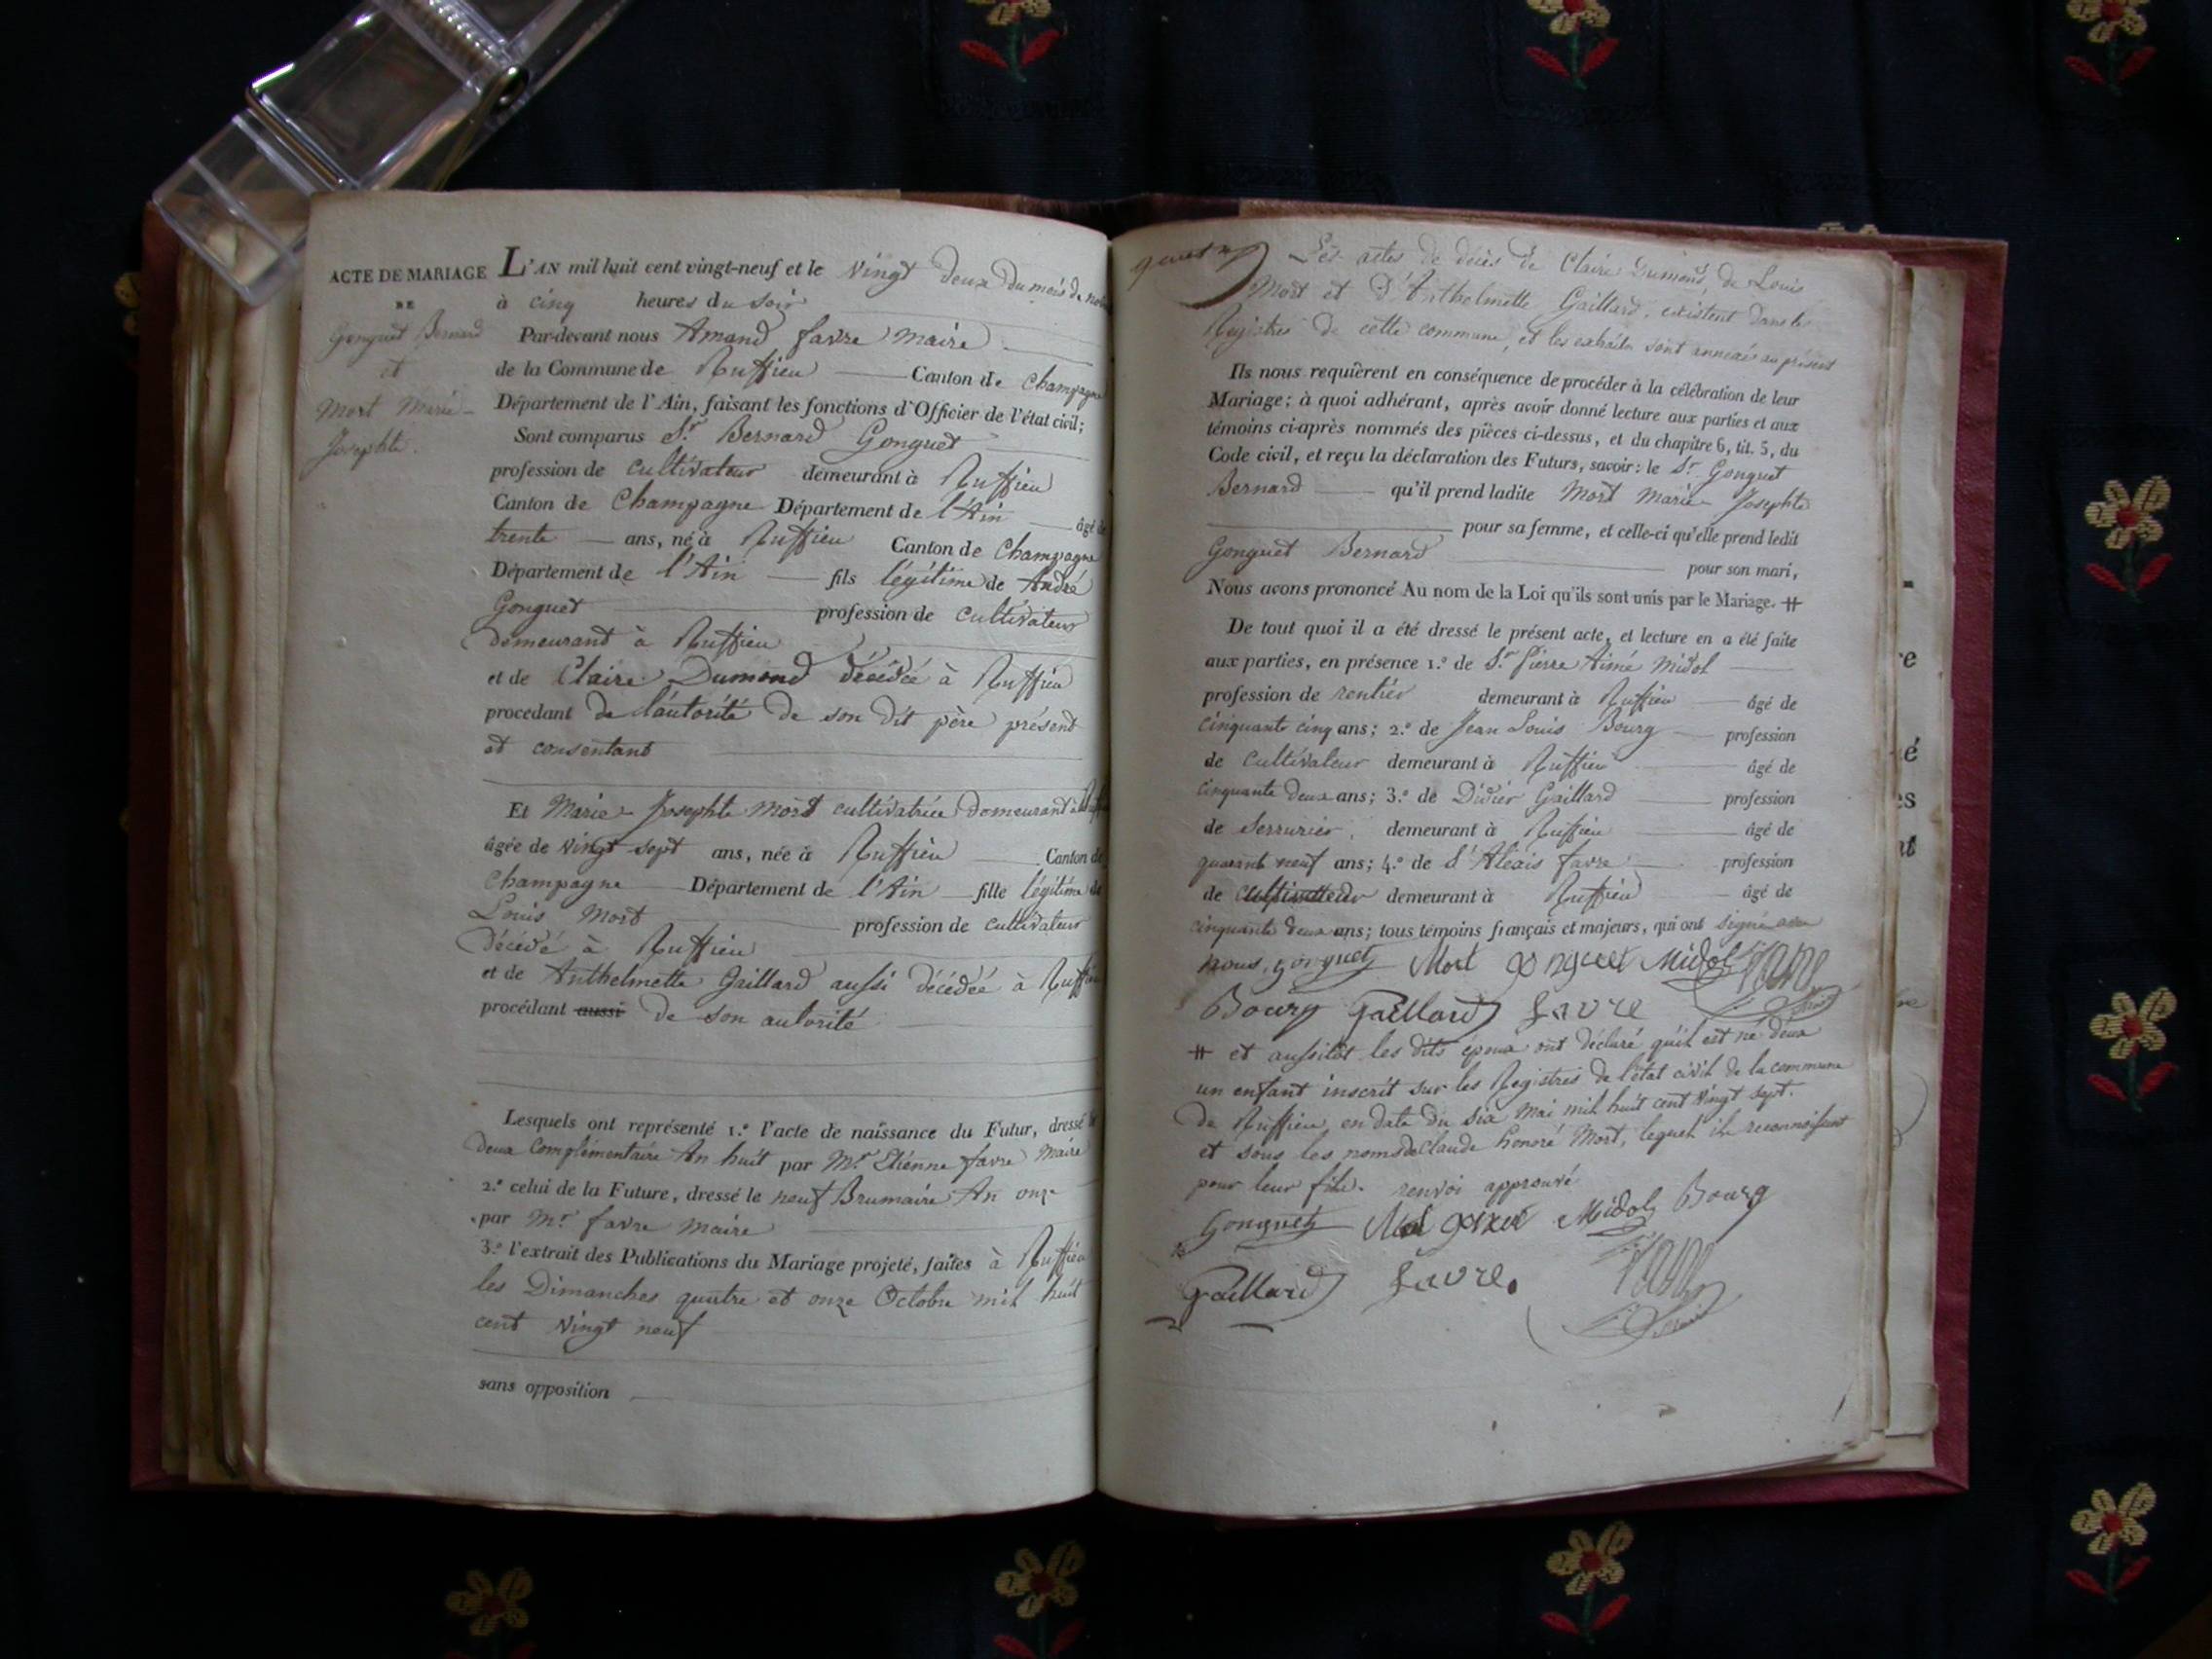 ACTE DE MARIAGE
DE
Gonguet Bernard
et
Mort Marie
Josephte.
L'AN mil huit cent vingt-neuf et le vingt deux du mois de
à cinq heures du soir
Par-devant nous Amand favre maire
de la Commune de Ruffieu Canton de Champagne
Département de l'Ain, faisant les fonctions d'Officier de l'état civil;
Sont comparus Sr. Bernard Gonguet
profession de cultivateur demeurant à Ruffieu
Canton de Champagne Département de l'Ain âgé de
trente ans, né à Ruffieu Canton de Champagne
Département de l'Ain fils légitime de André
Gonguet profession de cultivateur
demeurant à Ruffieu
et de Claire Dumond décédée à Ruffieu
procédant de l'autorité de son dit père présent
et consentant
Et Marie Josephte Mort cultivatrice demeurant à
âgée de vingt sept ans, née à Ruffieu Canton de
Champagne Département de l'Ain fille légitime de
Louis Mort profession de cultivateur
décédé à Ruffieu
et de Anthelmette Gaillard aussi décédée à Ruffieu
procédant aussi de son autorité
Lesquels ont représenté 1.º l'acte de naissance du Futur, dressé le
deux complémentaire An huit par Mr. Etienne favre Maire
2.º celui de la Future, dressé le neuf Brumaire An onze
par Mr. favre maire
3.º l'extrait des Publications du Mariage projeté, faites à Ruffieu
les Dimanches quatre et onze Octobre mil huit
cent vingt neuf
sans opposition
Les actes de décès de Claire Dumond, de Louis
Mort et d'Anthelmette Gaillard, existent dans les
Registres de cette commune, et les extraits sont annexés au présent
Ils nous requièrent en conséquence de procéder à la célébration de leur
Mariage; à quoi adhérant, après avoir donné lecture aux parties et aux
témoins ci-après nommés des pièces ci-dessus, et du chapitre 6, tit. 5, du
Code civil, et reçu la déclaration des Futurs, savoir: le Sr. Gonguet
Bernard qu'il prend ladite Mort Marie Josephte
pour sa femme, et celle-ci qu'elle prend ledit
Gonguet Bernard pour son mari,
Nous avons prononcé Au nom de la Loi qu'ils sont unis par le Mariage. #
De tout quoi il a été dressé le présent acte, et lecture en a été faite
aux parties, en présence 1.º de Sr. Pierre Aimé Midol
profession de rentier demeurant à Ruffieu âgé de
cinquante cinq ans; 2.º de Jean Louis Bourg profession
de cultivateur demeurant à Ruffieu âgé de
cinquante deux ans; 3.º de Didier Gaillard profession
de Serrurier, demeurant à Ruffieu âgé de
quarante neuf ans; 4.º de Sr Alexis favre profession
de cultivateur demeurant à Ruffieu âgé de
cinquante deux ans; tous témoins français et majeurs, qui ont signé avec
nous, gonguet Mort gonguet Midol
Bourg Gaillard favre
# et aussitôt les dits époux ont déclaré qu'il est né deux
un enfant inscrit sur les Registres de l'état civil de la commune
de Ruffieu, en date du six Mai mil huit cent vingt sept.
et sous les noms de Claude honoré Mort, lequel ils reconnoissent
pour leur fils. renvoi approuvé
Gonguet Midol Bourg
Gaillard favre.